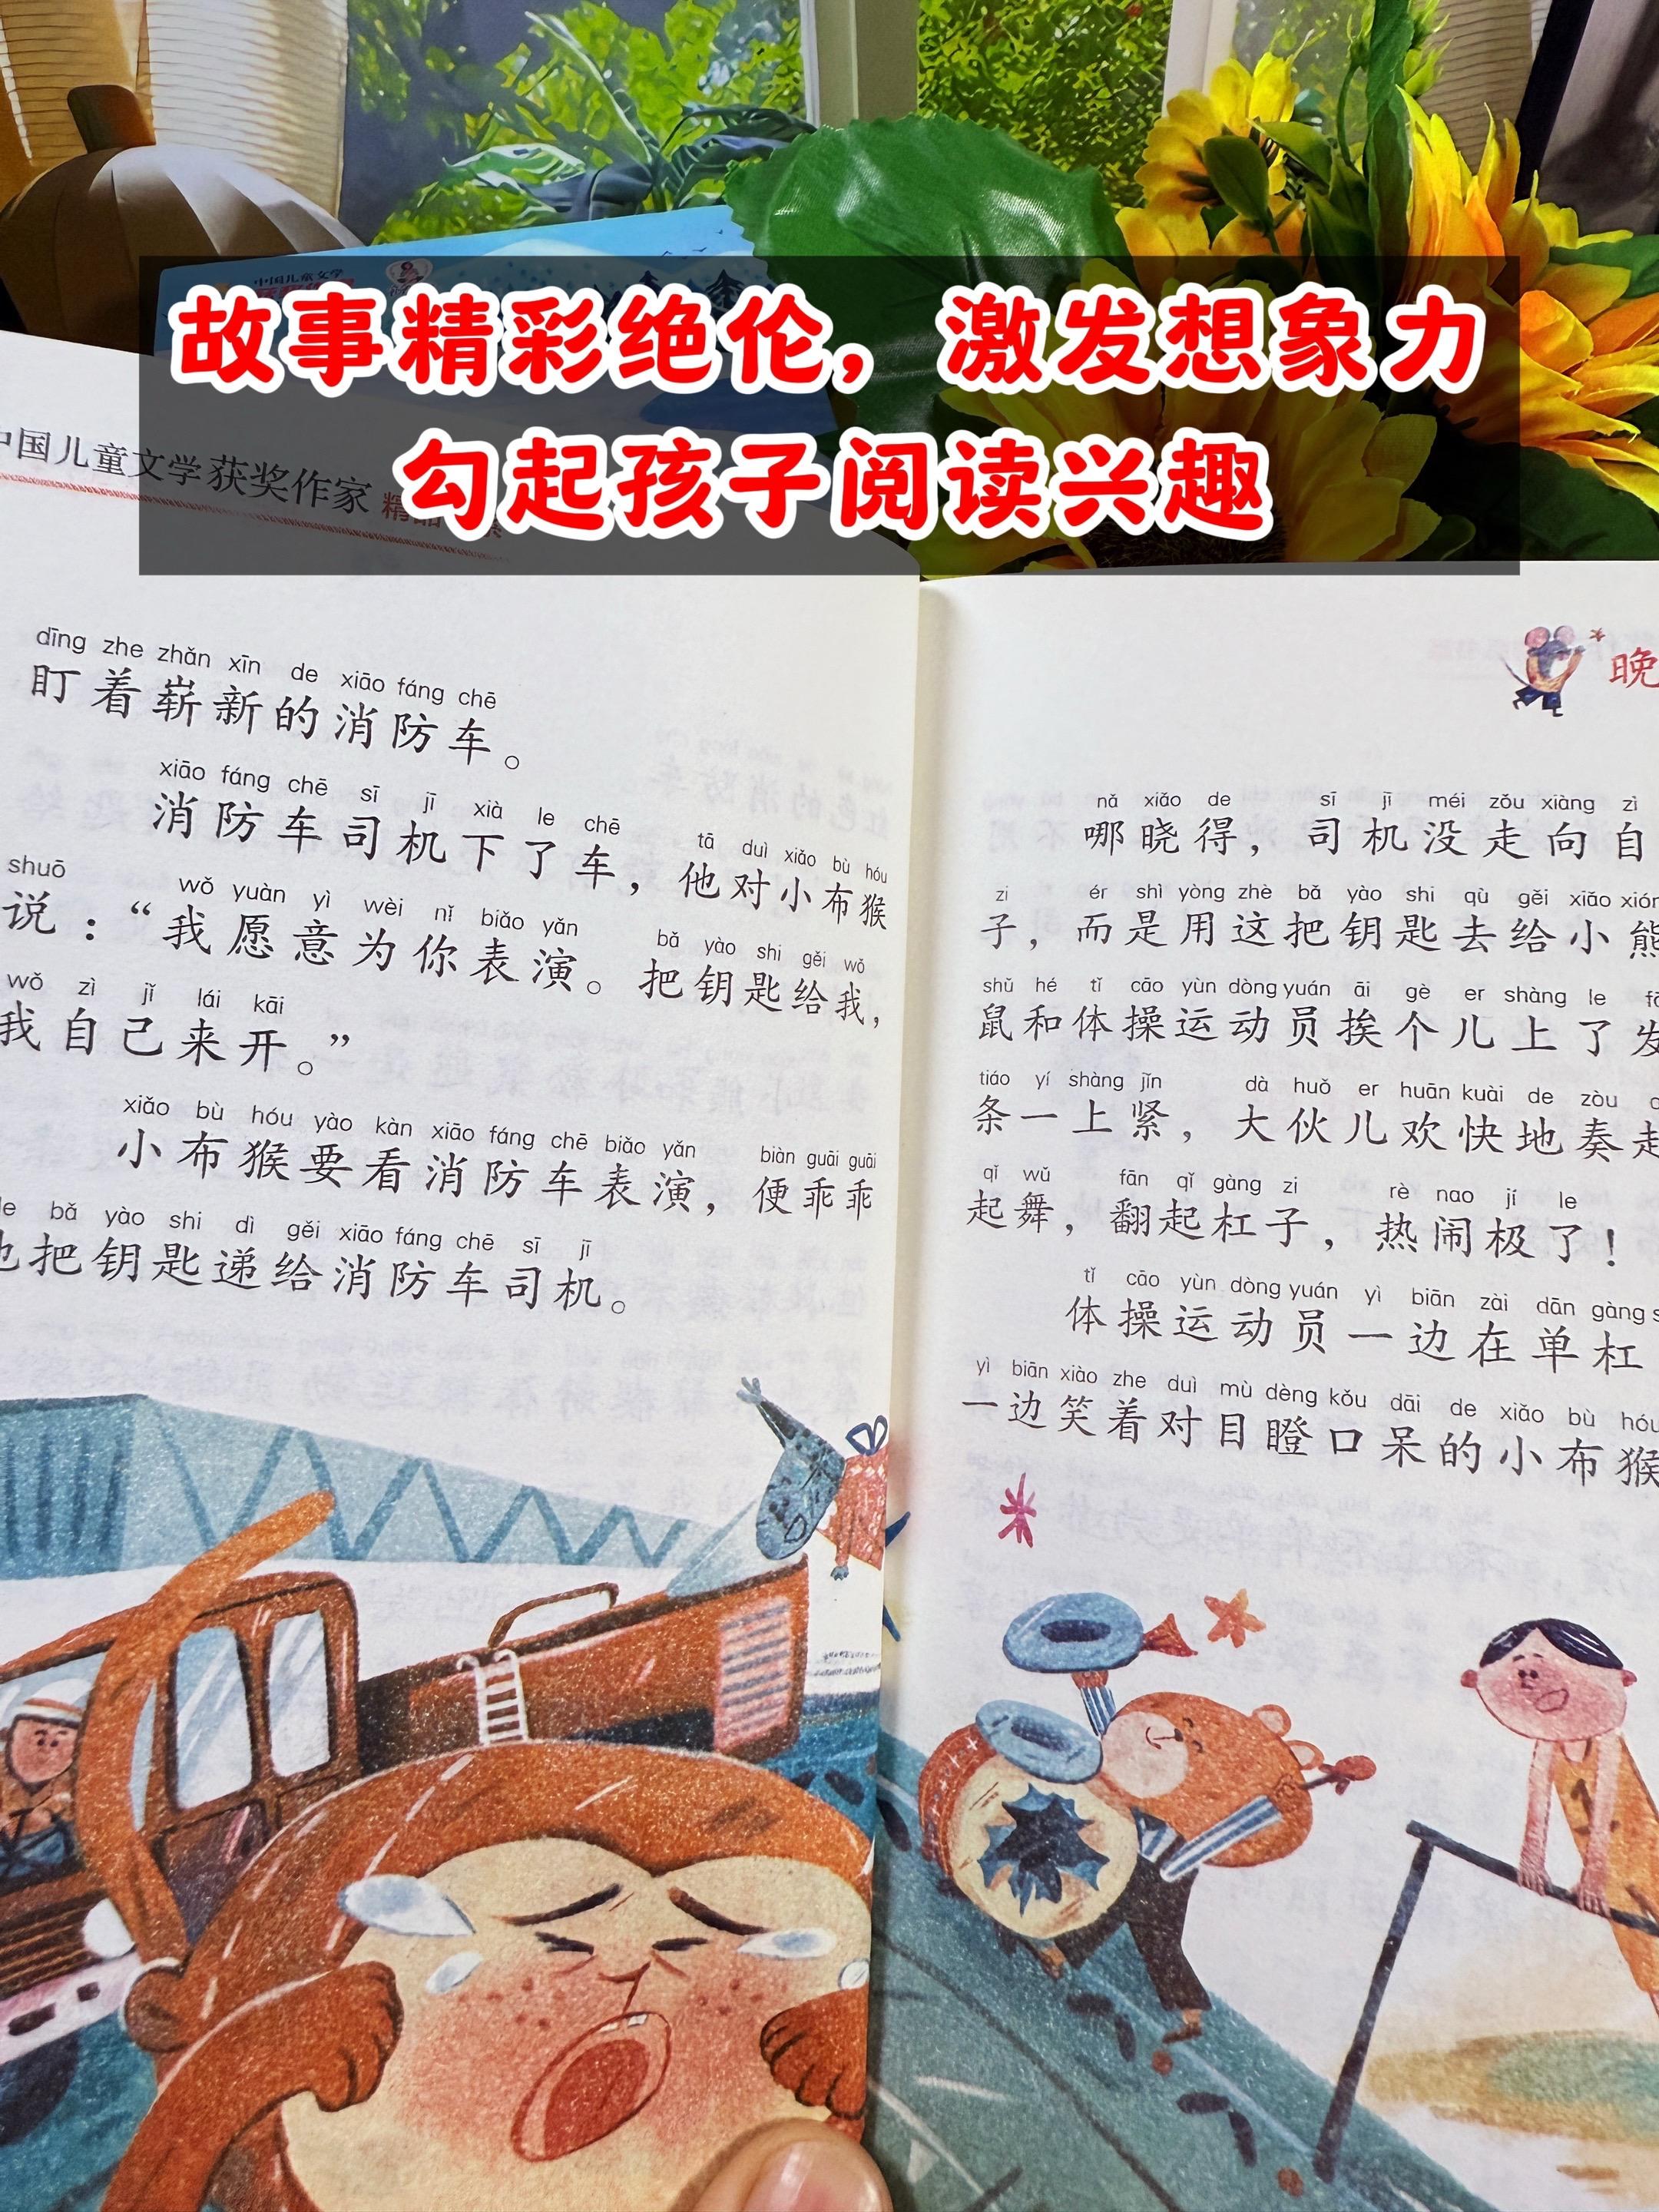 中国儿童文学
故事精彩绝伦，激发想象力
勾起孩子阅读兴趣
中国儿童文学获奖作家 精品
dīng zhe zhǎn xīn de xiāo fáng chē
盯着崭新的消防车。
xiāo fáng chē sī jī xià le chē tā duì xiǎo bù hóu
消防车司机下了车，他对小布猴
shuō wǒ yuàn yì wèi nǐ biǎo yǎn bǎ yào shi gěi wǒ
说：“我愿意为你表演。把钥匙给我，
wǒ zì jǐ lái kāi
我自己来开。”
xiǎo bù hóu yào kàn xiāo fáng chē biǎo yǎn biàn guāi guāi
小布猴要看消防车表演，便乖乖
bǎ yào shi dì gěi xiāo fáng chē sī jī
地把钥匙递给消防车司机。
晚
nǎ xiǎo de sī jī méi zǒu xiàng zì
哪晓得，司机没走向自
zi ér shì yòng zhè bǎ yào shi qù gěi xiǎo
子，而是用这把钥匙去给小熊
shǔ hé tǐ cāo yùn dòng yuán āi gè er shàng le
鼠和体操运动员挨个儿上了发
tiáo yí shàng jǐn dà huǒ er huān kuài de zòu
条一上紧，大伙儿欢快地奏起
qǐ wǔ fān qǐ gàng zi rè nao jí le
起舞，翻起杠子，热闹极了！
tǐ cāo yùn dòng yuán yì biān zài dān gàng
体操运动员一边在单杠
yì biān xiào zhe duì mù dèng kǒu dāi de xiǎo bù hóu
一边笑着对目瞪口呆的小布猴